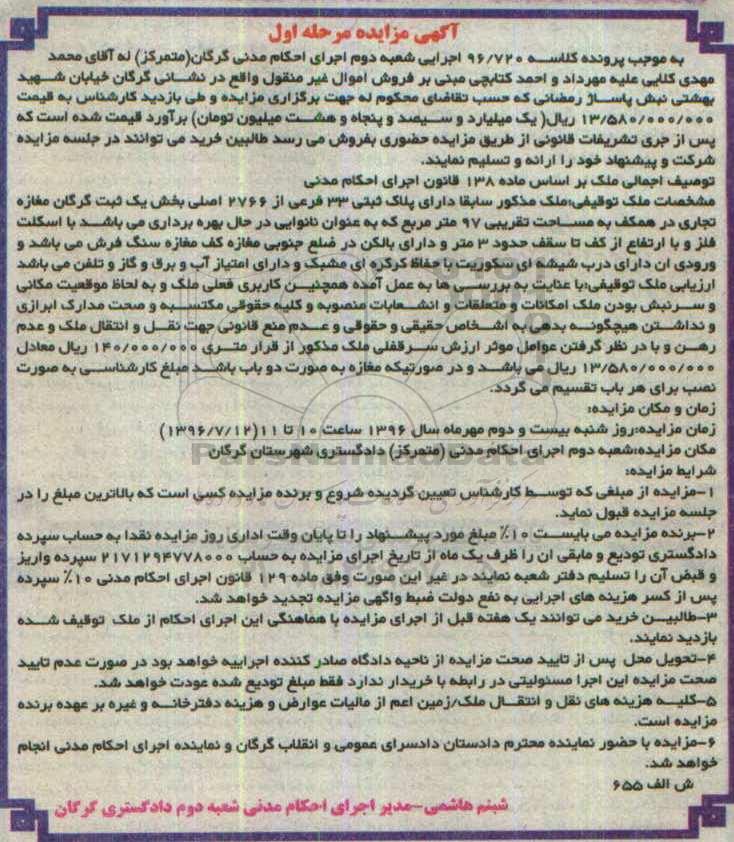 آگهی مزایده مرحله اول
به موجب پرونده کلاسه ۹۶/۷۲۰ اجرایی شعبه دوم اجرای احکام مدنی گرگان(متمرکز) له آقای محمد
مهدی کلایی علیه مهرداد و احمد کتابچی مبنی بر فروش اموال غیر منقول واقع در نشانی گرگان خیابان شهید
بهشتی نبش پاساژ رمضانی که حسب تقاضای محکوم له جهت برگزاری مزایده و طی بازدید کارشناس به قیمت
۱۳/۵۸۰/۰۰۰/۰۰۰ ریال( یک میلیارد و سیصد و پنجاه و هشت میلیون تومان) برآورد قیمت شده است که
پس از جری تشریفات قانونی از طریق مزایده حضوری بفروش می رسد طالبین خرید می توانند در جلسه مزایده
شرکت و پیشنهاد خود را ارائه و تسلیم نمایند.
توصیف اجمالی ملک بر اساس ماده ۱۳۸ قانون اجرای احکام مدنی
مشخصات ملک توقیفی:ملک مذکور سابقا دارای پلاک ثبتی ۳۳ فرعی از ۲۷۶۶ اصلی بخش یک ثبت گرگان مغازه
تجاری در همکف به مساحت تقریبی ۹۷ متر مربع که به عنوان نانوایی در حال بهره برداری می باشد با اسکلت
فلز و با ارتفاع از کف تا سقف حدود ۳ متر و دارای بالکن در ضلع جنوبی مغازه کف مغازه سنگ فرش می باشد و
ورودی ان دارای درب شیشه ای سکوریت با حفاظ کرکره ای مشبک و دارای امتیاز آب و برق و گاز و تلفن می باشد
ارزیابی ملک توقیفی:با عنایت به بررسی ها به عمل آمده همچنین کاربری فعلی ملک و به لحاظ موقعیت مکانی
و سرنبش بودن ملک امکانات و متعلقات و انشعابات منصوبه و کلیه حقوقی مکتسبه و صحت مدارک ابرازی
و نداشتن هیچگونه بدهی به اشخاص حقیقی و حقوقی و عدم منع قانونی جهت نقل و انتقال ملک و عدم
رهن و با در نظر گرفتن عوامل موثر ارزش سرقفلی ملک مذکور از قرار متری ۱۴۰/۰۰۰/۰۰۰ ریال معادل
۱۳/۵۸۰/۰۰۰/۰۰۰ ریال می باشد و در صورتیکه مغازه به صورت دو باب باشد مبلغ کارشناسی به صورت
نصب برای هر باب تقسیم می گردد.
زمان و مکان مزایده:
زمان مزایده:روز شنبه بیست و دوم مهرماه سال ۱۳۹۶ ساعت ۱۰ تا ۱۱(۱۳۹۶/۷/۱۲)
مکان مزایده:شعبه دوم اجرای احکام مدنی (متمرکز) دادگستری شهرستان گرگان
ParsNamadData
شرایط مزایده:
۱-مزایده از مبلغی که توسط کارشناس تعیین گردیده شروع و برنده مزایده کسی است که بالاترین مبلغ را در
جلسه مزایده قبول نماید.
۲-برنده مزایده می بایست ۱۰٪ مبلغ مورد پیشنهاد را تا پایان وقت اداری روز مزایده نقدا به حساب سپرده
دادگستری تودیع و مابقی ان را ظرف یک ماه از تاریخ اجرای مزایده به حساب ۲۱۷۱۲۹۴۷۷۸۰۰۰ سپرده واریز
و قبض آن را تسلیم دفتر شعبه نمایند در غیر این صورت وفق ماده ۱۲۹ قانون اجرای احکام مدنی ۱۰٪ سپرده
پس از کسر هزینه های اجرایی به نفع دولت ضبط واگهی مزایده تجدید خواهد شد.
۳-طالبین خرید می توانند یک هفته قبل از اجرای مزایده با هماهنگی این اجرای احکام از ملک توقیف شده
بازدید نمایند.
۴-تحویل محل پس از تایید صحت مزایده از ناحیه دادگاه صادر کننده اجراییه خواهد بود در صورت عدم تایید
صحت مزایده این اجرا مسئولیتی در رابطه با خریدار ندارد فقط مبلغ تودیع شده عودت خواهد شد.
۵-کلیه هزینه های نقل و انتقال ملک/زمین اعم از مالیات عوارض و هزینه دفترخانه و غیره بر عهده برنده
مزایده است.
۶-مزایده با حضور نماینده محترم دادستان دادسرای عمومی و انقلاب گرگان و نماینده اجرای احکام مدنی انجام
خواهد شد.
ش الف ۶۵۵
شبنم هاشمی-مدیر اجرای احکام مدنی شعبه دوم دادگستری گرگان